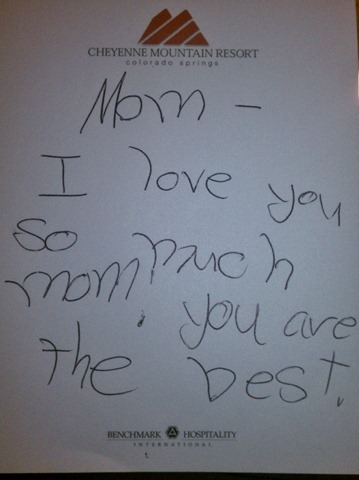 CHEYENNE MOUNTAIN RESORT
colorado springs
Mom -
I love you
so much
mom. you are
the best.
BENCHMARK HOSPITALITY
INTERNATIONAL